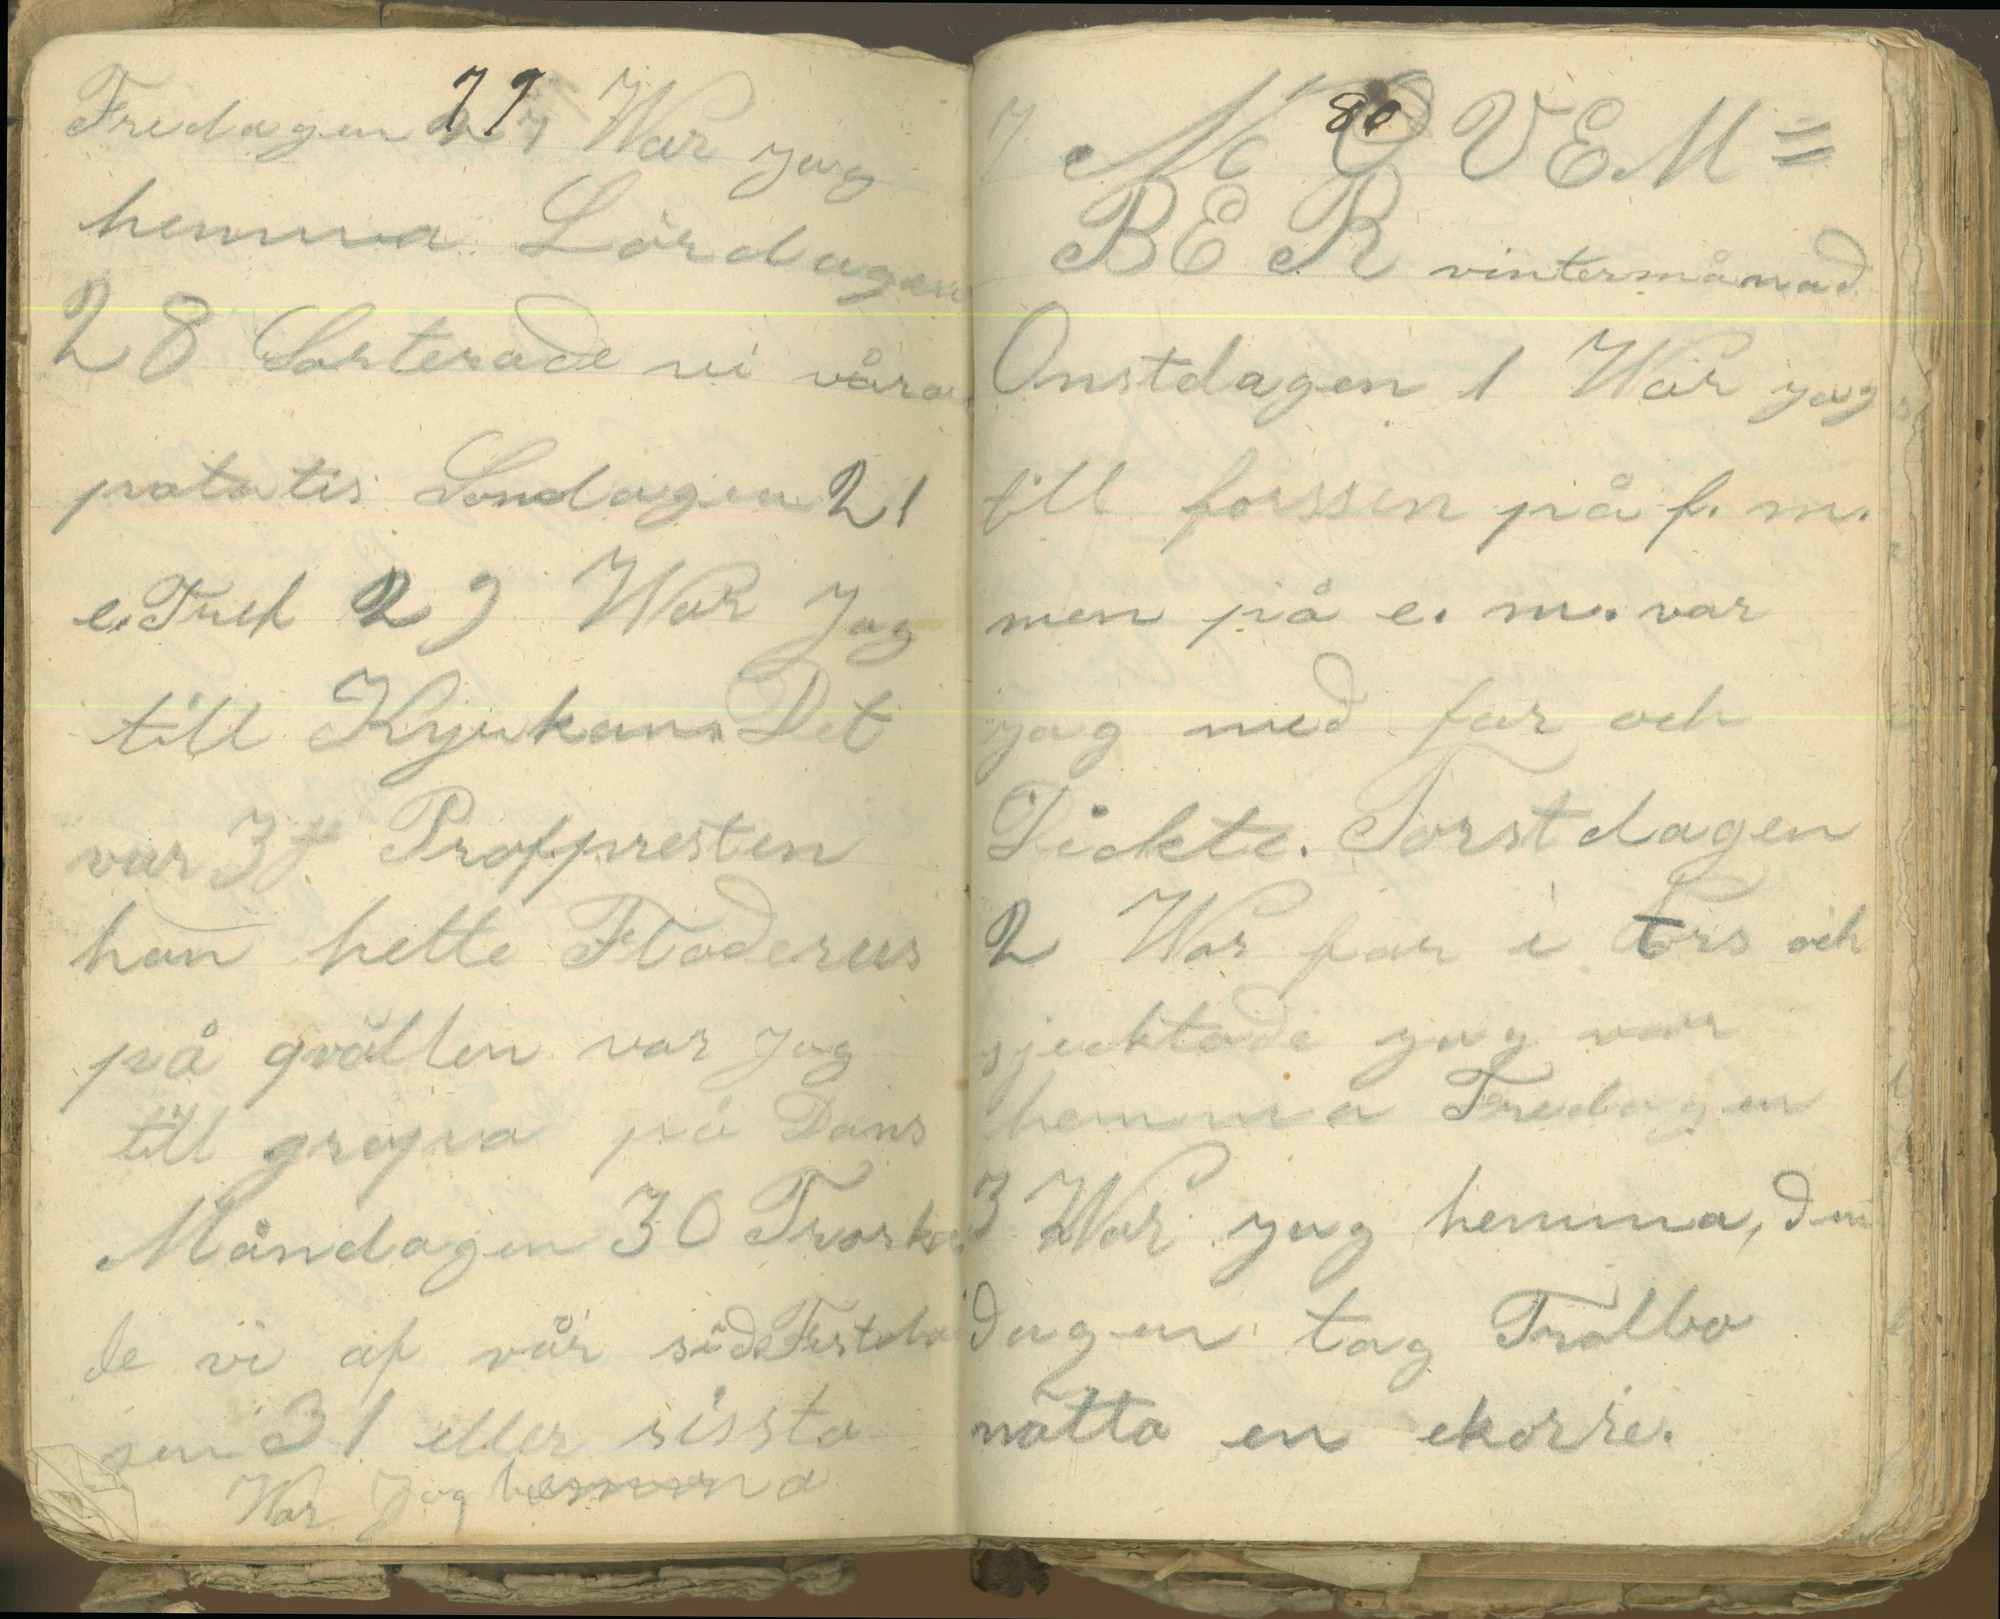 79
Fredagen 27 War jag
hemma Lördagen
28 Sorterade vi våra
potatis Söndagen 21
e. Tref 29 War Jag
till Kyrkan. Det
var 3je Profpresten
han hette Floderus
på qvällen var Jag
till grepia på Dans
Måndagen 30 Troska
de vi af vår sida
sen 31 eller sissta
War Jag hemma
80
NOVEM=
BER vintermånad
Onstdagen 1 War jag
till forssen på f. m.
men på e. m. var
jag med far och
Dickte. Torstdagen
2 War far i Tors och
sjecktade jag var
hemma Fredagen
3 War jag hemma, den
dagen tag Trallbo
nätta en ekorre.